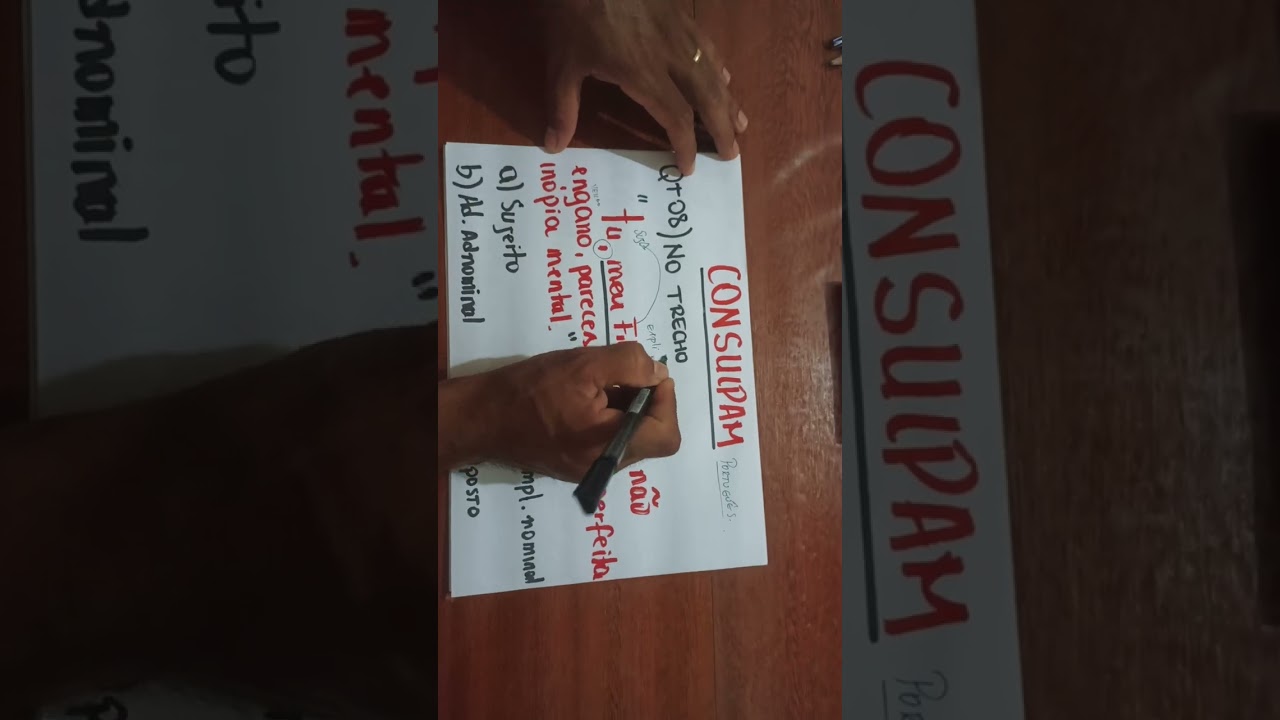 CONSULPAM PORTUGUÊS.
Qt 08) NO TRECHO
suj expli
" tu, meu não
engano, pareces erfeita
inópia mental."
a) Sujeito mpl. nominal
b) Ad. Adnominal posto